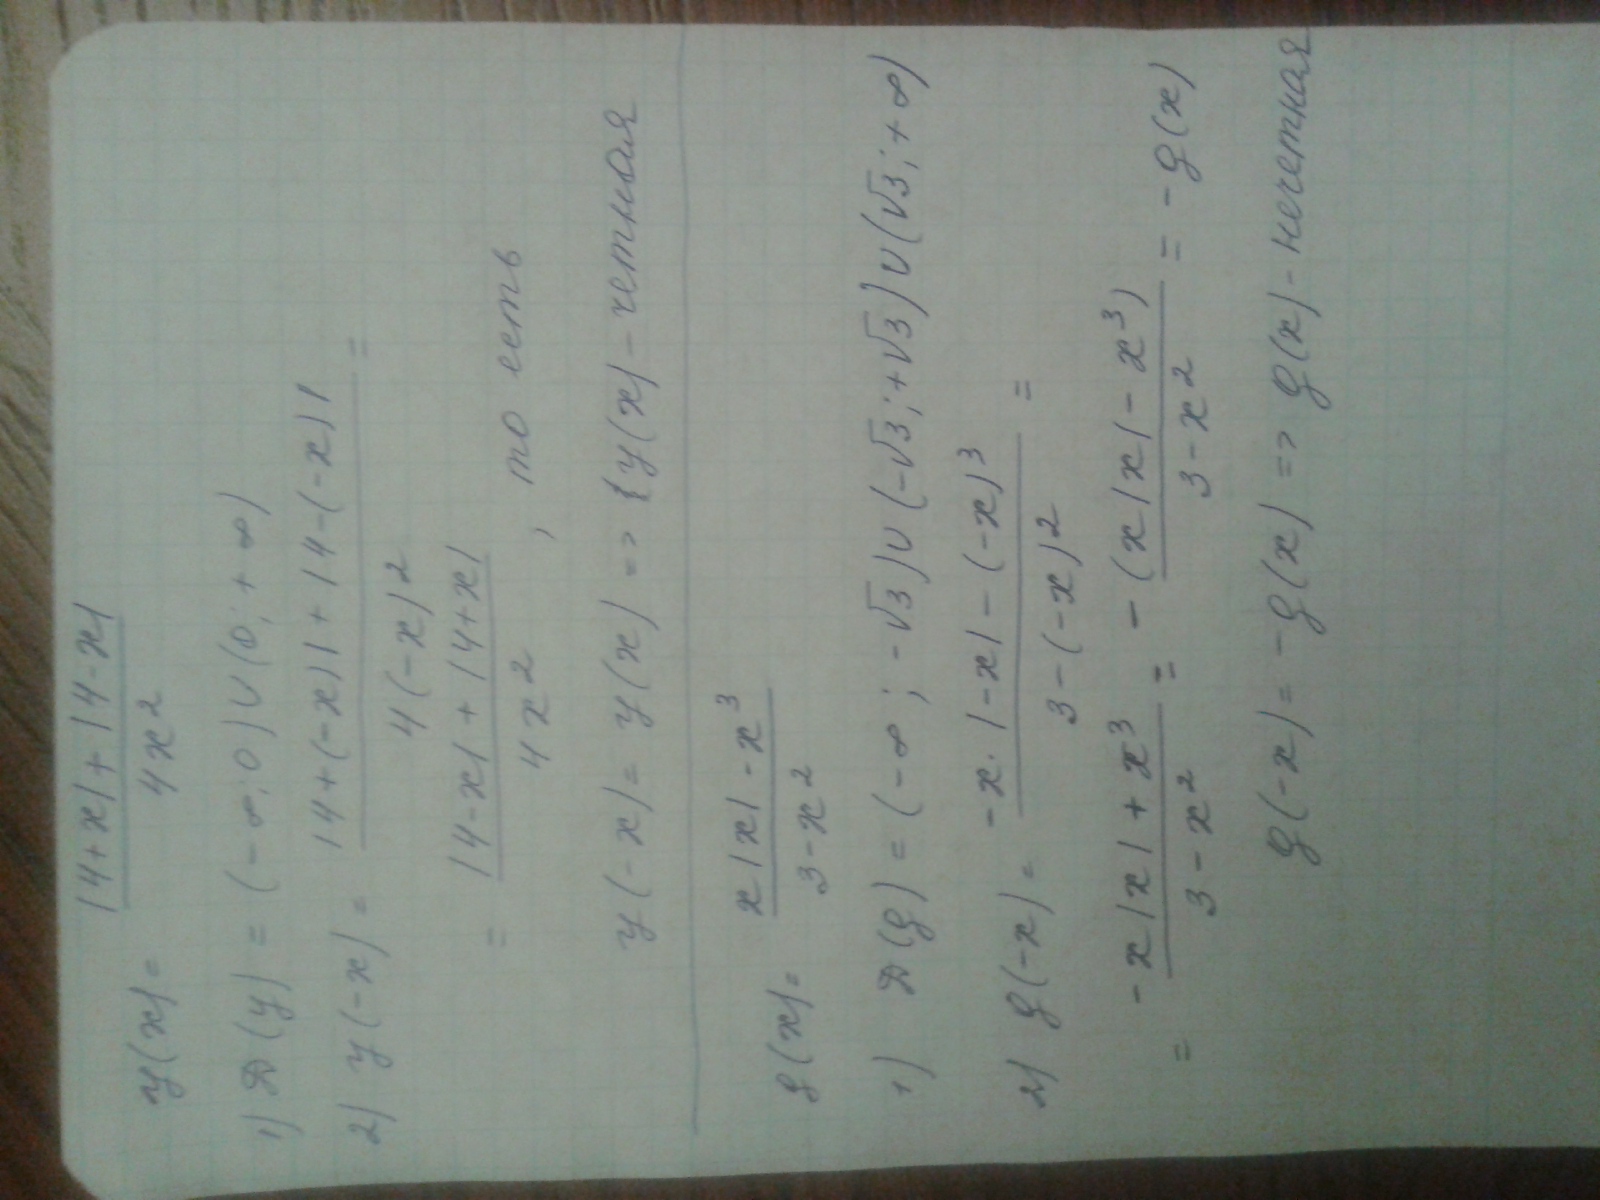 y(x) = |4+x|+|4-x| / 4x²
1) D(y) = (-∞; 0) ∪ (0; +∞)
2) y(-x) = |4+(-x)| + |4-(-x)| / 4(-x)² =
= |4-x| + |4+x| / 4x² , то есть
y(-x) = y(x) => {y(x) - четная
g(x) = x|x| - x³ / 3-x²
1) D(g) = (-∞; -√3) ∪ (-√3; +√3) ∪ (√3; +∞)
2) g(-x) = -x·|-x| - (-x)³ / 3-(-x)² =
= -x|x| + x³ / 3-x² = -(x|x| - x³) / 3-x² = -g(x)
g(-x) = -g(x) => g(x) - нечетная